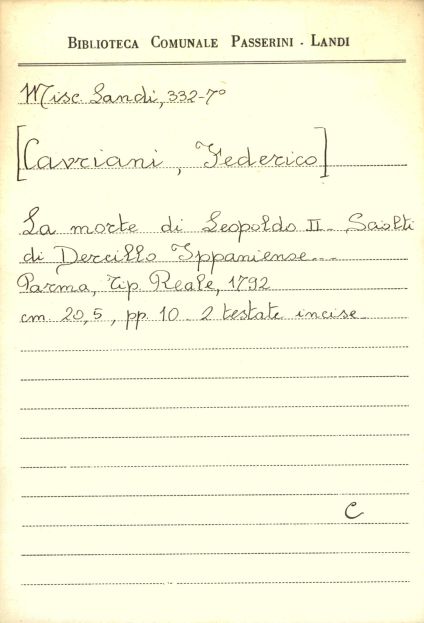 BIBLIOTECA COMUNALE PASSERINI - LANDI
Misc. Landi, 332-7º
[Cavriani, Federico]
La morte di Leopoldo II - Sciolti
di Dercillo Ippaniense...
Parma, Tip. Reale, 1792
cm. 20,5, pp. 10 - 2 testate incise
C